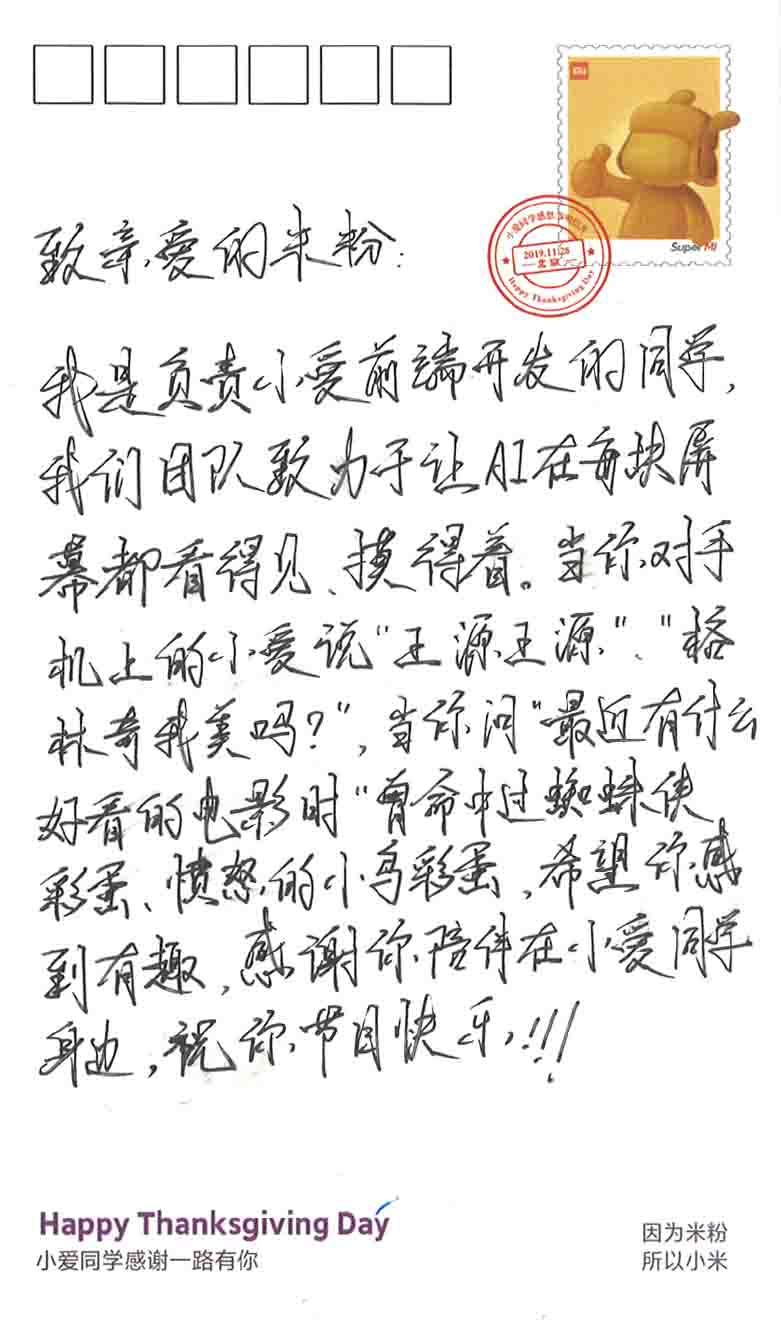 MI
Super MI
2019.11.28
Happy Thanksgiving Day
致亲爱的米粉：
我是负责小爱前端开发的同学，
我们团队致力于让AI在每块屏
幕都看得见、摸得着。当你对手
机上的小爱说“王源王源”、“格
林奇我美吗？”，当你问“最近有什么
好看的电影时”曾命中过蜘蛛侠
彩蛋、愤怒的小鸟彩蛋，希望你感
到有趣，感谢你陪伴在小爱同学
身边，祝你节日快乐！！！
Happy Thanksgiving Day
小爱同学感谢一路有你
因为米粉
所以小米